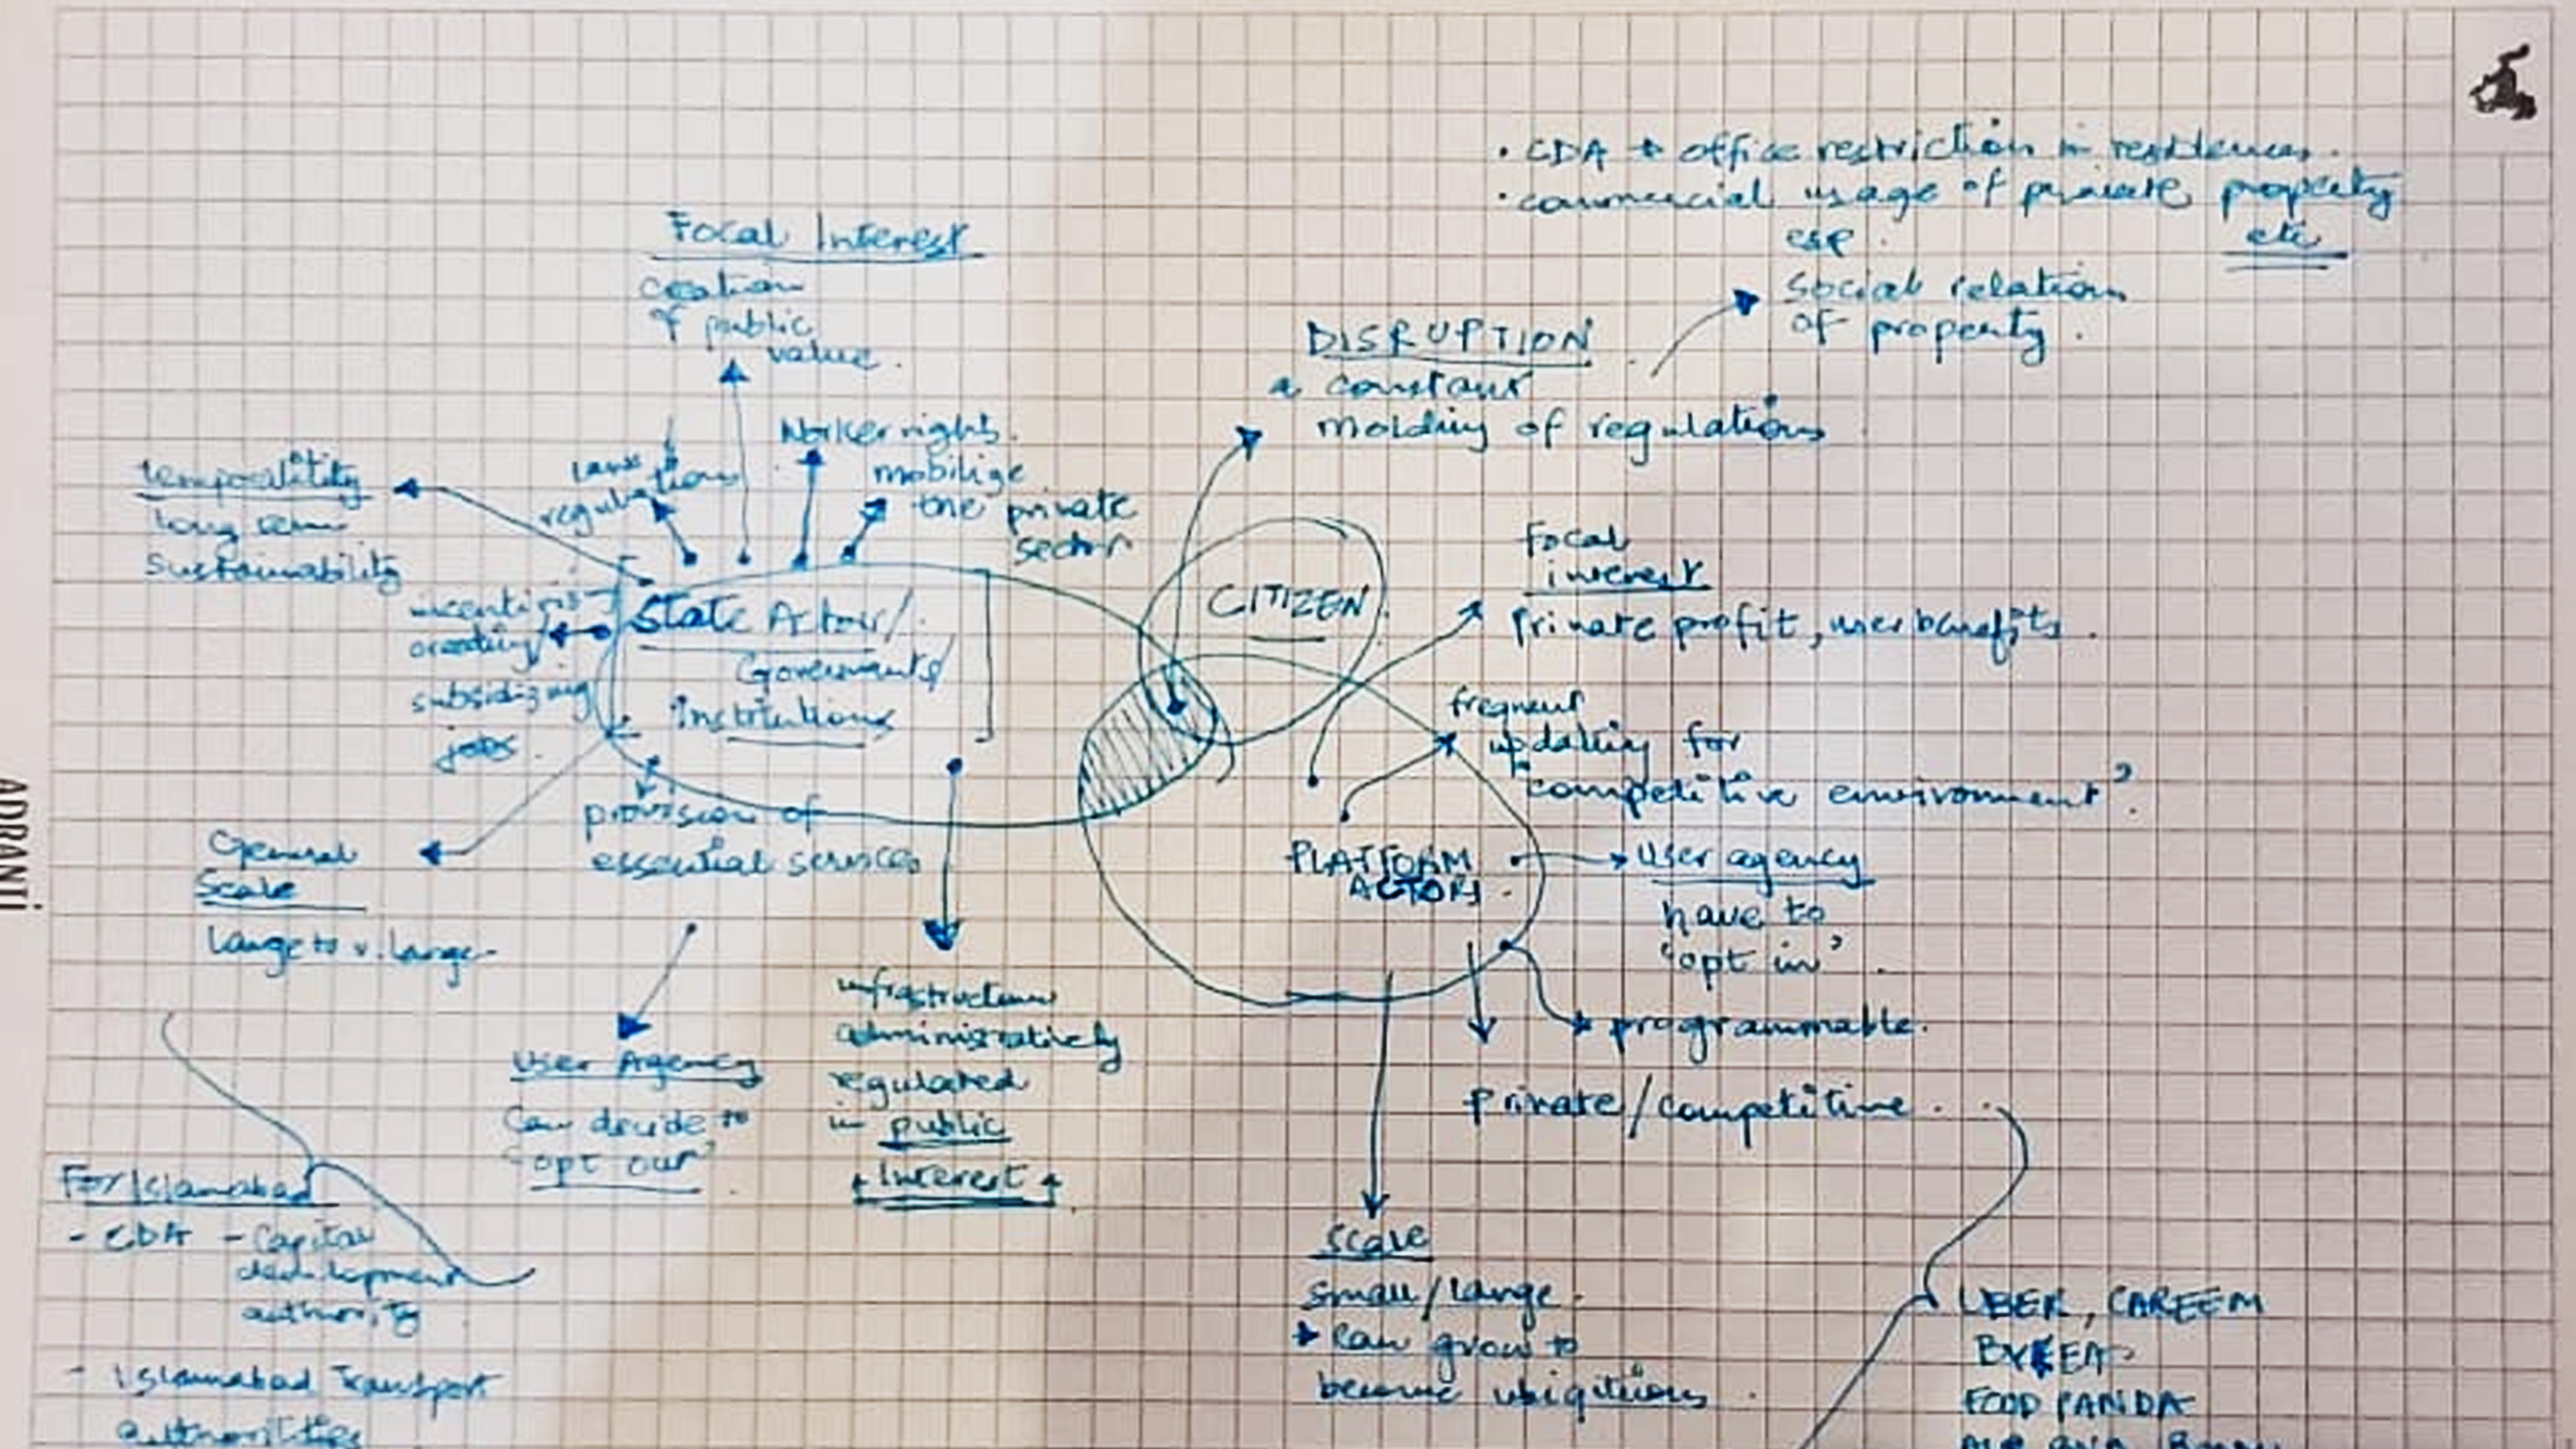 • CDA → office restriction in residences.
• commercial usage of private property
esp.
etc
social relations
of property.
Focal Interest
creation
of public
value.
DISRUPTION
a constant
molding of regulations
Worker rights.
mobilize
the private
sector
laws
regulations
temporalitity
long term
sustainability
State Actors/
Governments/
institutions
creating/
subsidizing
jobs.
CITIZEN
Focal
interest
Private profit, user benefits.
frequent
updating for
"competitive environment".
PLATFORM
ACTORS.
User agency
have to
'opt in'.
programmable.
private/competitive.
provision of
essential services
General
Scale
Large to v. large
User Agency
Can decide to
'opt out'.
infrastructure
administratively
regulated
in public
Interest
Scale
small/large.
→ can grow to
become ubiqitious.
For Islamabad
- CDA - Capital
development
authority
- Islamabad Transport
authorities
UBER, CAREEM
BYKEA
FOOD PANDA
ADRANI